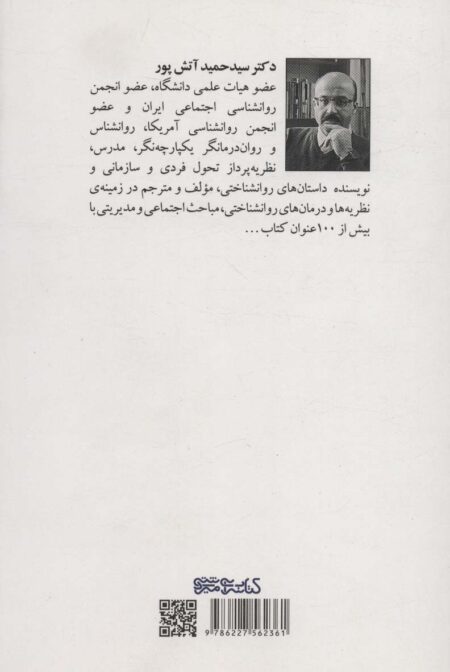 دکتر سیدحمید آتش پور
عضو هیات علمی دانشگاه، عضو انجمن
روانشناسی اجتماعی ایران و عضو
انجمن روانشناسی آمریکا، روانشناس
و روان‌درمانگر یکپارچه‌نگر، مدرس،
نظریه‌پرداز تحول فردی و سازمانی و
نویسنده داستان‌های روانشناختی، مؤلف و مترجم در زمینه‌ی
نظریه‌ها و درمان‌های روانشناختی، مباحث اجتماعی و مدیریتی با
بیش از ۱۰۰ عنوان کتاب ...
9 786227 562361